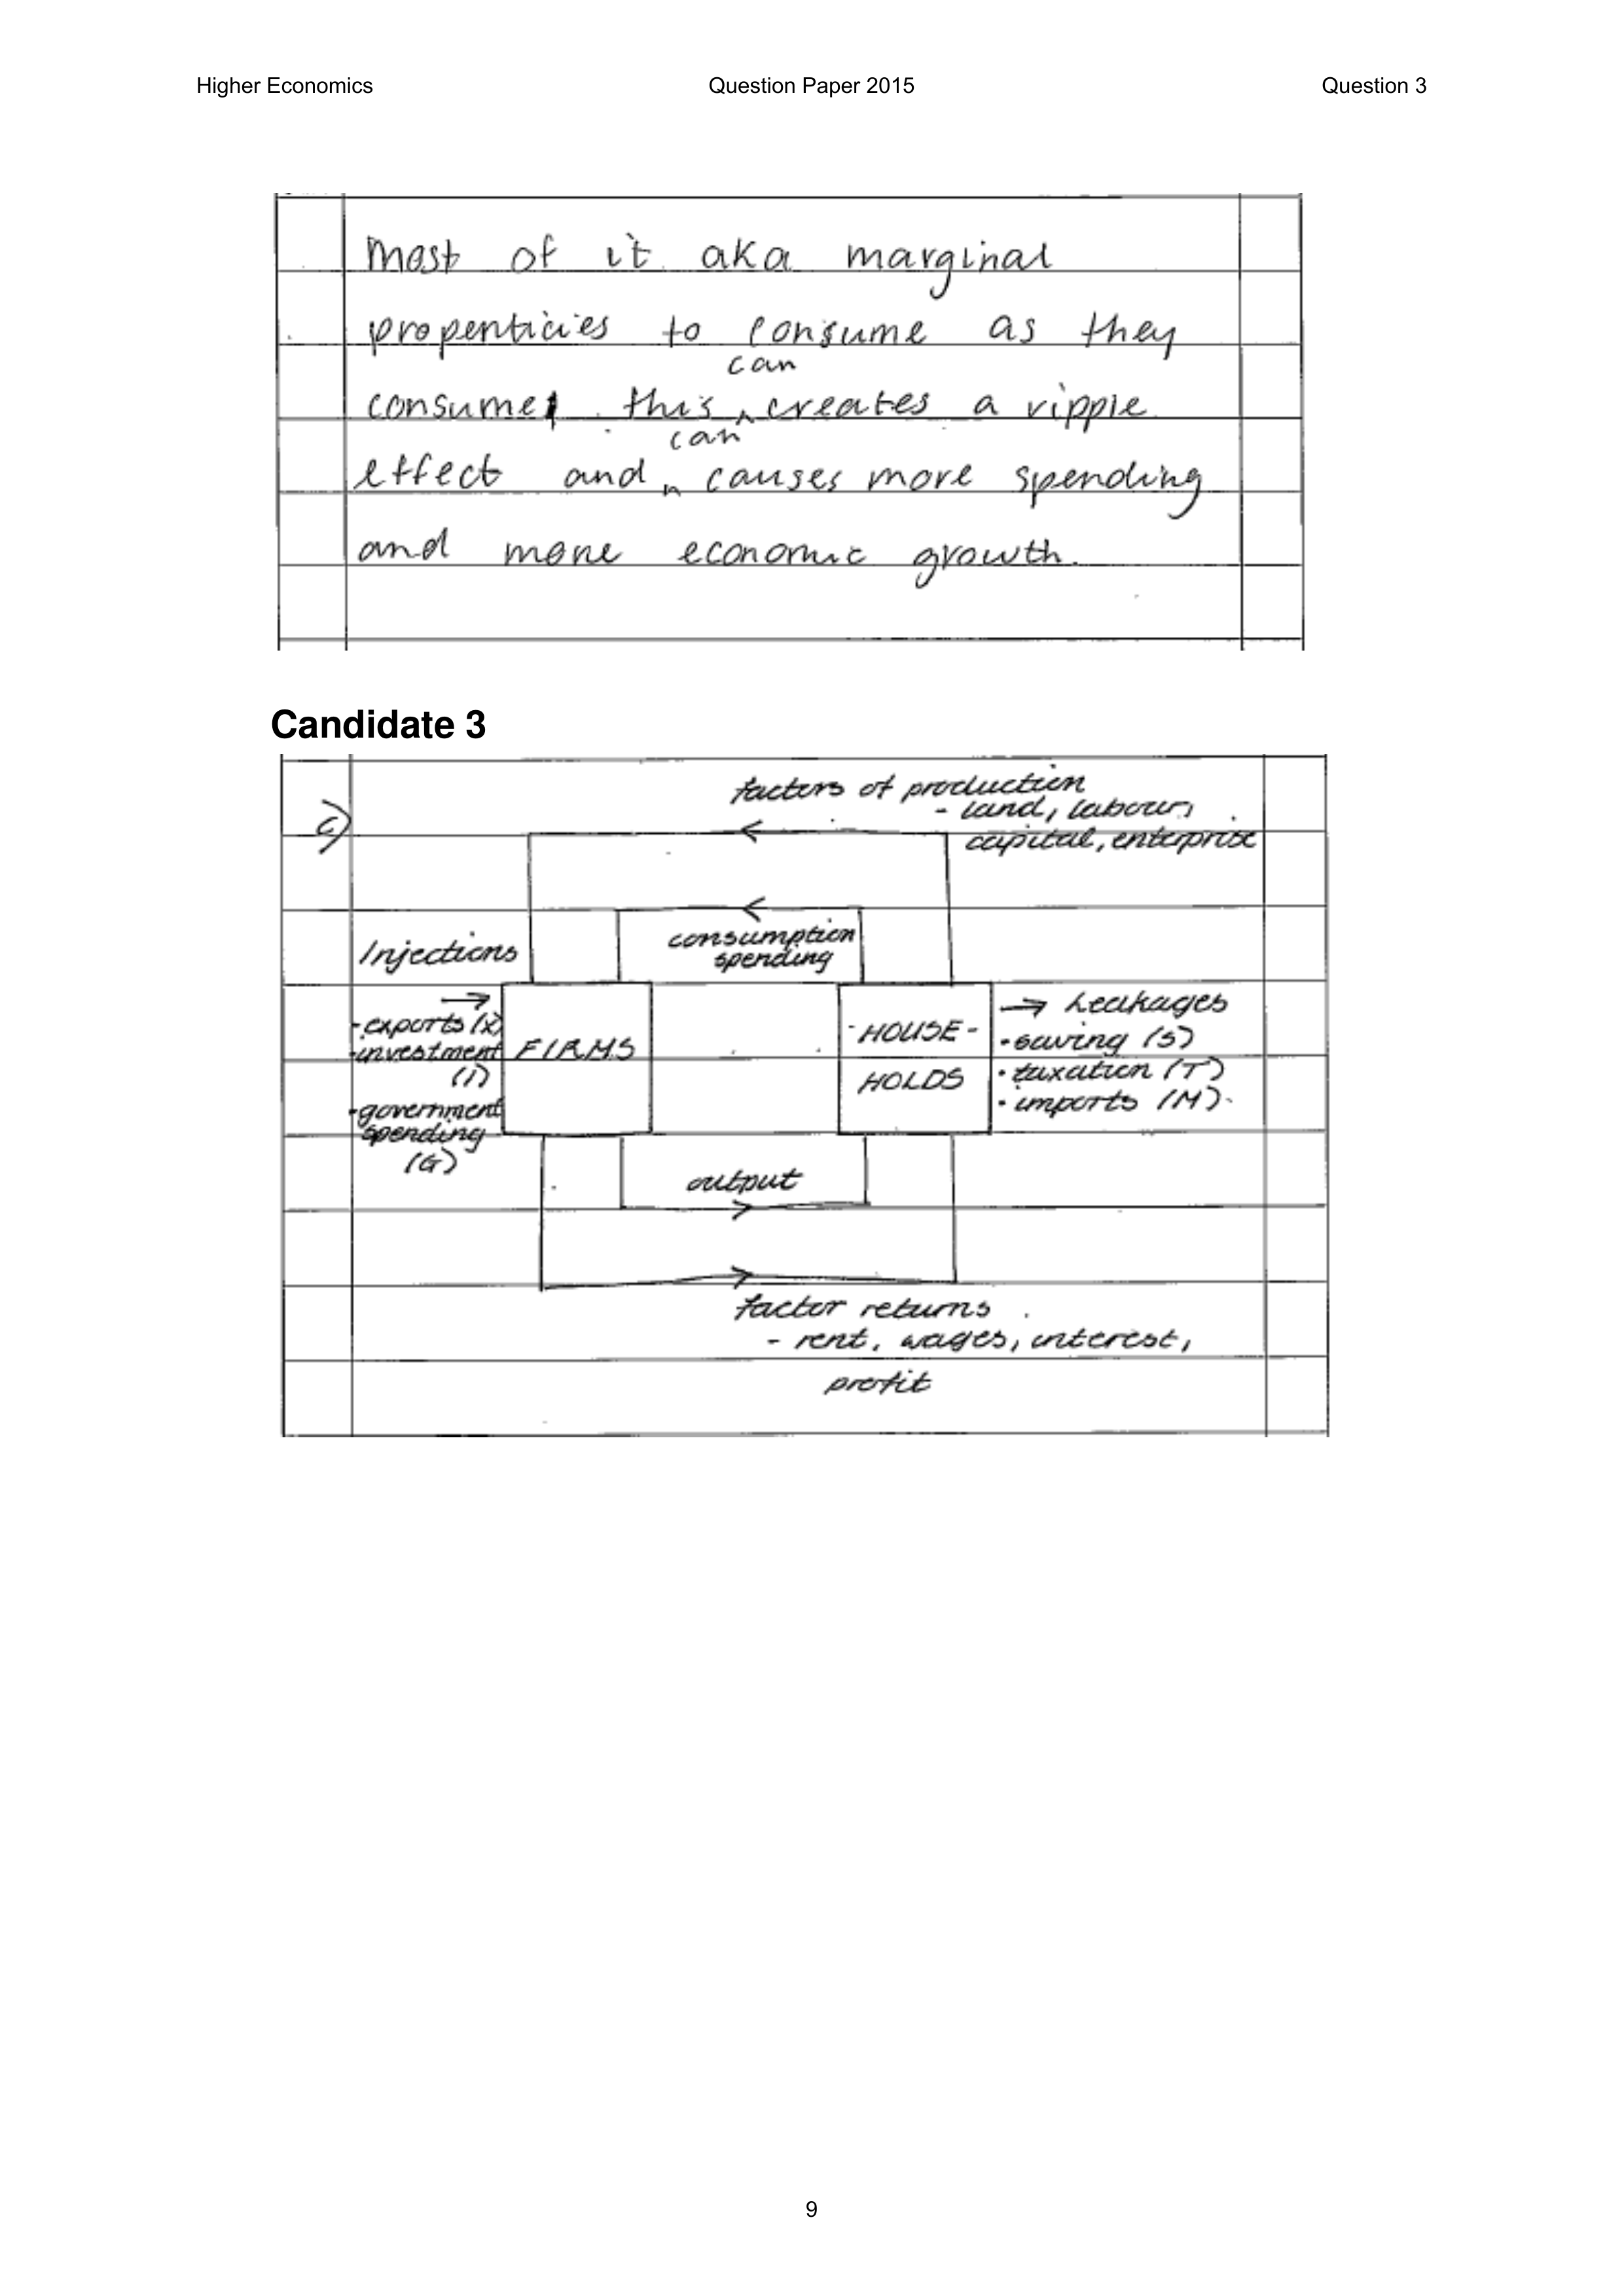 Higher Economics Question Paper 2015 Question 3
most of it aka marginal
propenticies to consume as they
can
consume, this creates a ripple
can
effect and causes more spending
and more economic growth.
Candidate 3
factors of production
- land, labour,
capital, enterprise
c)
consumption
spending
Injections
→
-exports (X)
-investment
(I)
-government
spending
(G)
FIRMS
-HOUSE-
HOLDS
→ Leakages
• saving (S)
• taxation (T)
• imports (M).
output
factor returns
- rent, wages, interest,
profit
9